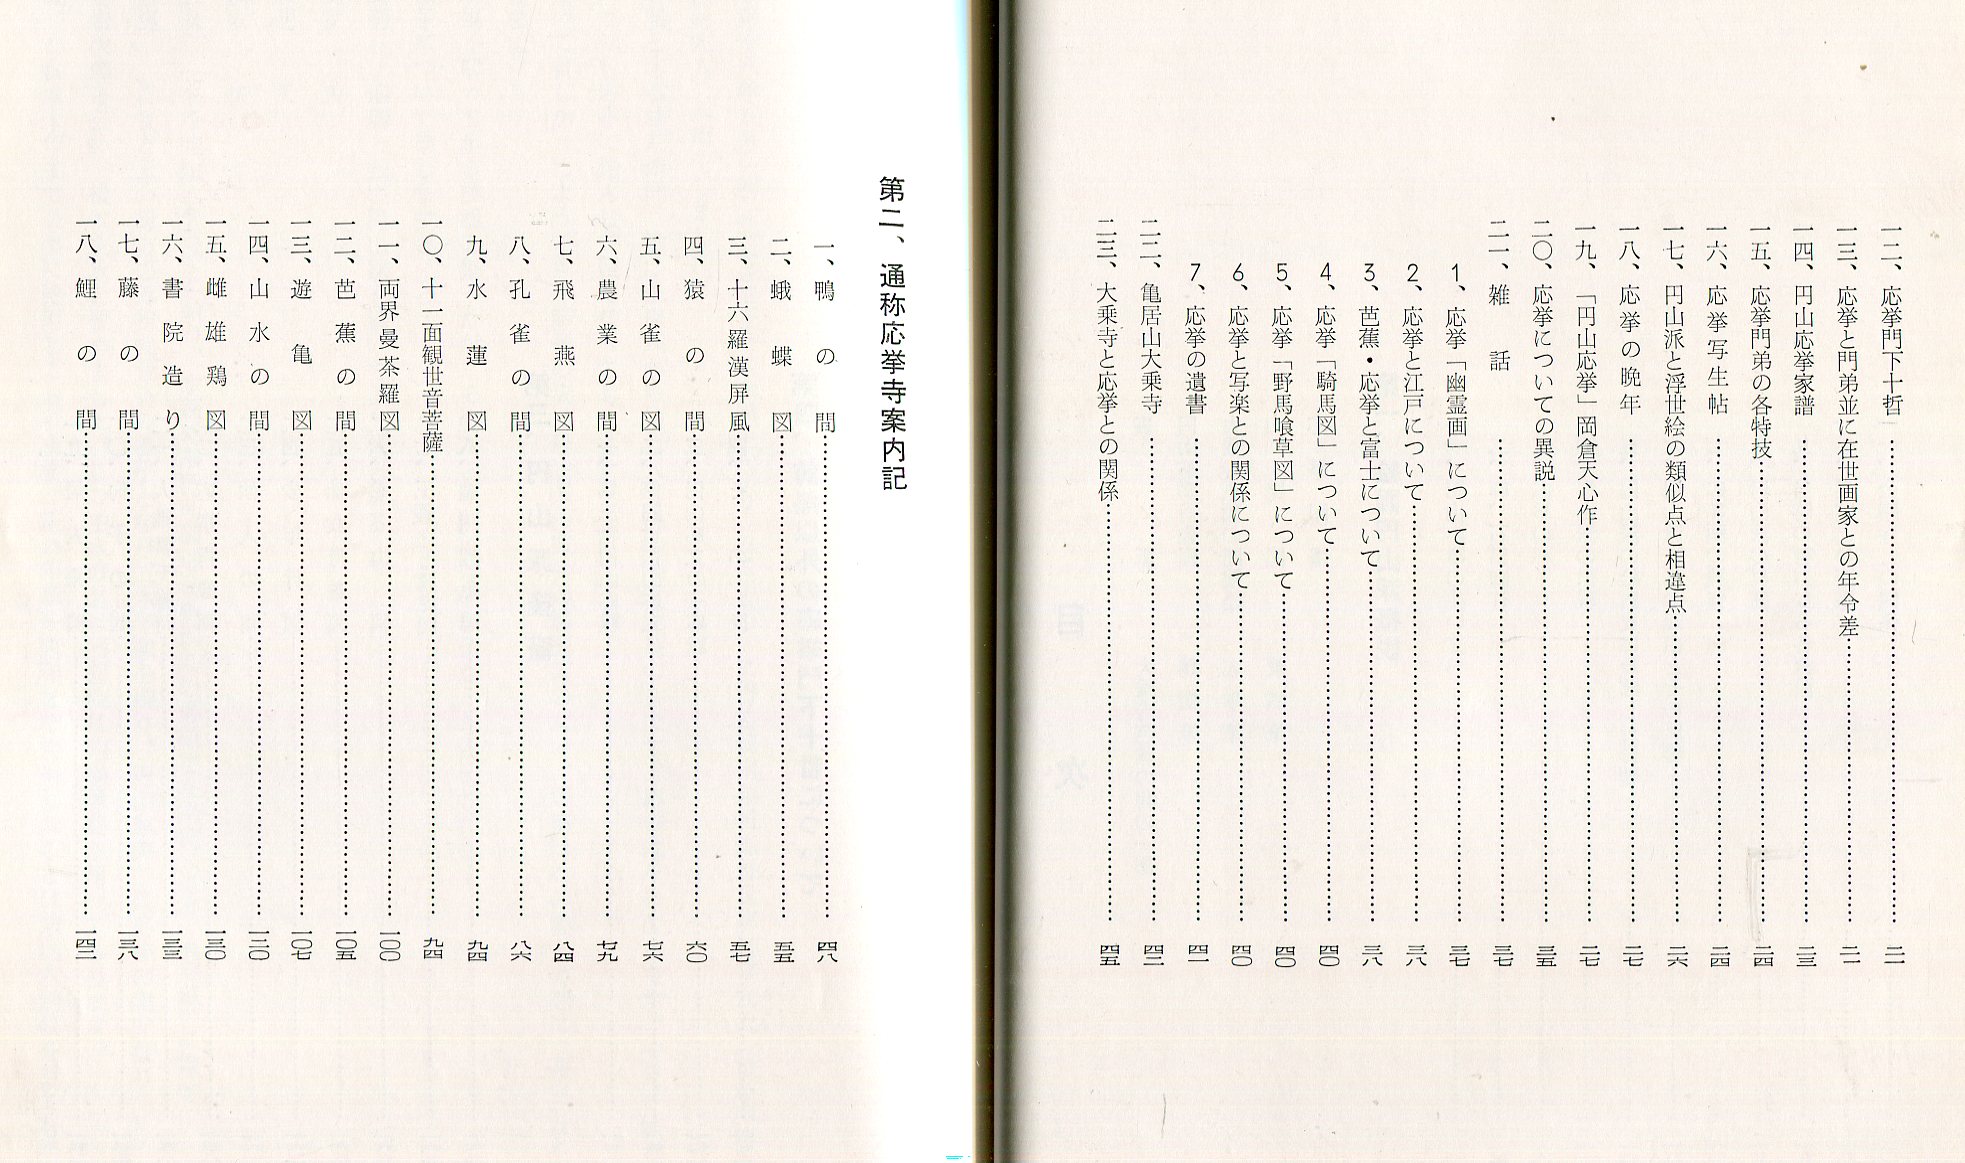 一二、応挙門下十哲……二一
一三、応挙と門弟並に在世画家との年令差……二一
一四、円山応挙家譜……二三
一五、応挙門弟の各特技……二四
一六、応挙写生帖……二四
一七、円山派と浮世絵の類似点と相違点……二六
一八、応挙の晩年……二七
一九、「円山応挙」岡倉天心作……二七
二〇、応挙についての異説……三五
二一、雑話……三七
1、応挙「幽霊画」について……三七
2、応挙と江戸について……三八
3、芭蕉・応挙と富士について……三八
4、応挙「騎馬図」について……四〇
5、応挙「野馬喰草図」について……四〇
6、応挙と写楽との関係について……四〇
7、応挙の遺書……四一
二二、亀居山大乗寺……四二
二三、大乗寺と応挙との関係……四五
第二、通称応挙寺案内記
一、鴨の間……四八
二、蛾蝶図……五五
三、十六羅漢屏風……五七
四、猿の間……六〇
五、山雀の図……七六
六、農業の間……七九
七、飛燕図……八四
八、孔雀の間……八六
九、水蓮図……九四
一〇、十一面観世音菩薩……九四
一一、両界曼荼羅図……一〇〇
一二、芭蕉の間……一〇五
一三、遊亀図……一〇七
一四、山水の間……一二〇
一五、雌雄鶏図……一三〇
一六、書院造り……一三三
一七、藤の間……一三八
一八、鯉の間……一四二